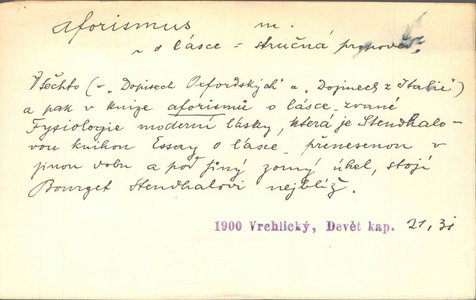 aforismus m.
~ o lásce = stručná propověď.
V těchto (v „Dojisech Oxfordských" a „Dojmech z Italie")
a pak v knize aforismů o lásce, zvané
Fysiologie moderní lásky, která je Stendhalo-
vou knihou Essay o lásce přenesenou v
jinou dobu a pod jiný zorný úhel, stojí
Bourget Stendhalovi nejblíž.
1900 Vrchlický, Devět kap. 21, 31